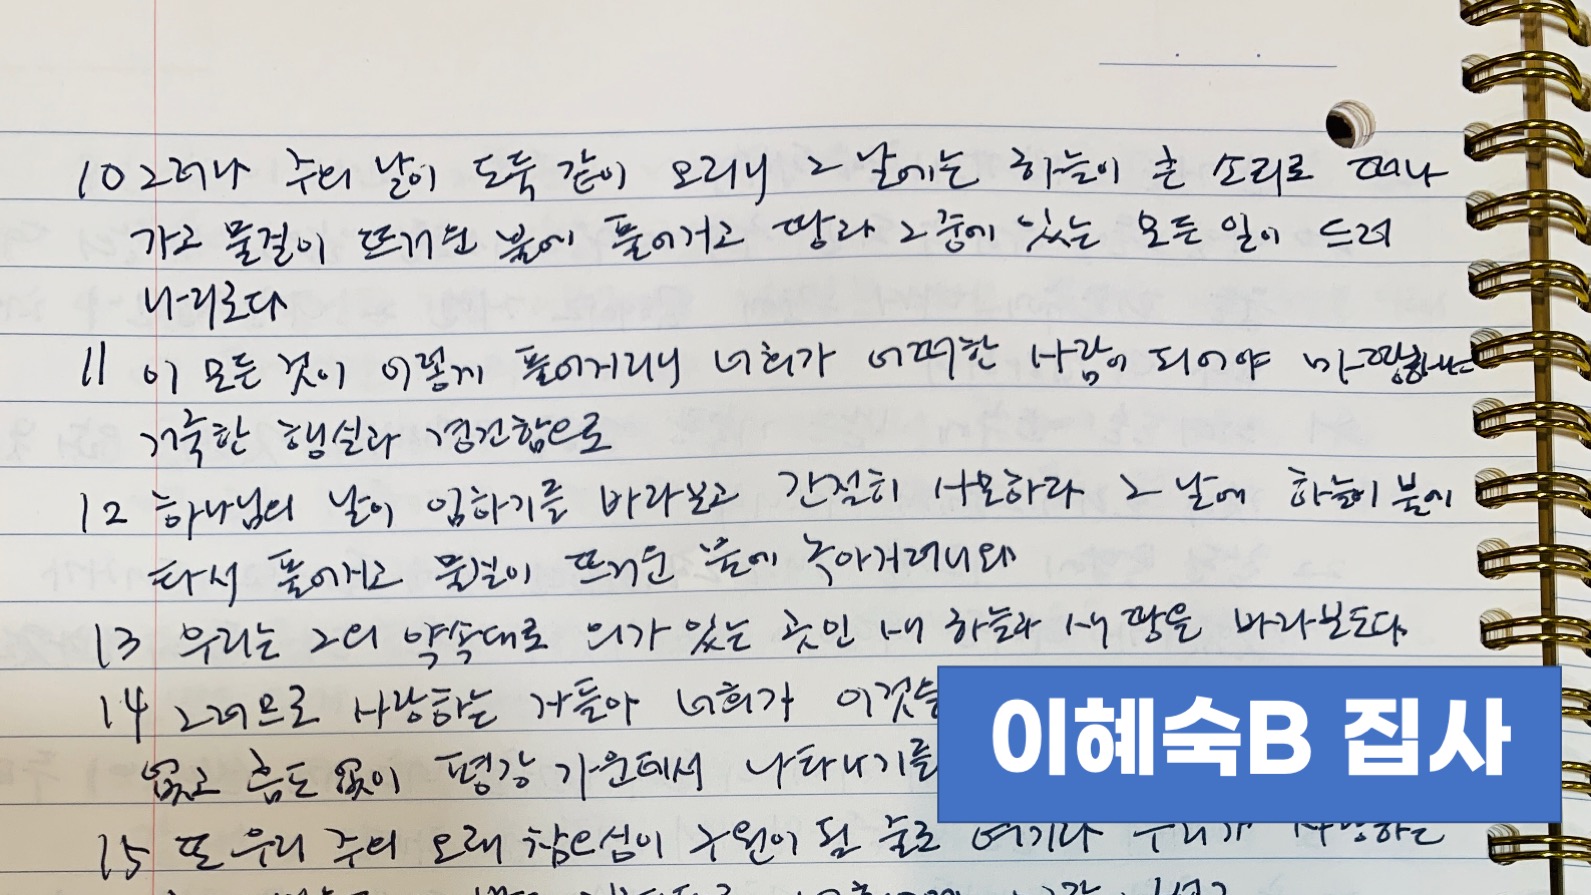 10 그러나 주의 날이 도둑 같이 오리니 그 날에는 하늘이 큰 소리로 떠나
가고 물질이 뜨거운 불에 풀어지고 땅과 그 중에 있는 모든 일이 드러
나리로다
11 이 모든 것이 이렇게 풀어지리니 너희가 어떠한 사람이 되어야 마땅하냐
거룩한 행실과 경건함으로
12 하나님의 날이 임하기를 바라보고 간절히 사모하라 그 날에 하늘이 불에
타서 풀어지고 물질이 뜨거운 불에 녹아지려니와
13 우리는 그의 약속대로 의가 있는 곳인 새 하늘과 새 땅을 바라보도다
14 그러므로 사랑하는 자들아 너희가 이것을
없고 흠도 없이 평강 가운데서 나타나기를
이혜숙B 집사
15 또 우리 주의 오래 참으심이 구원이 될 줄로 여기라 우리가 사랑하는